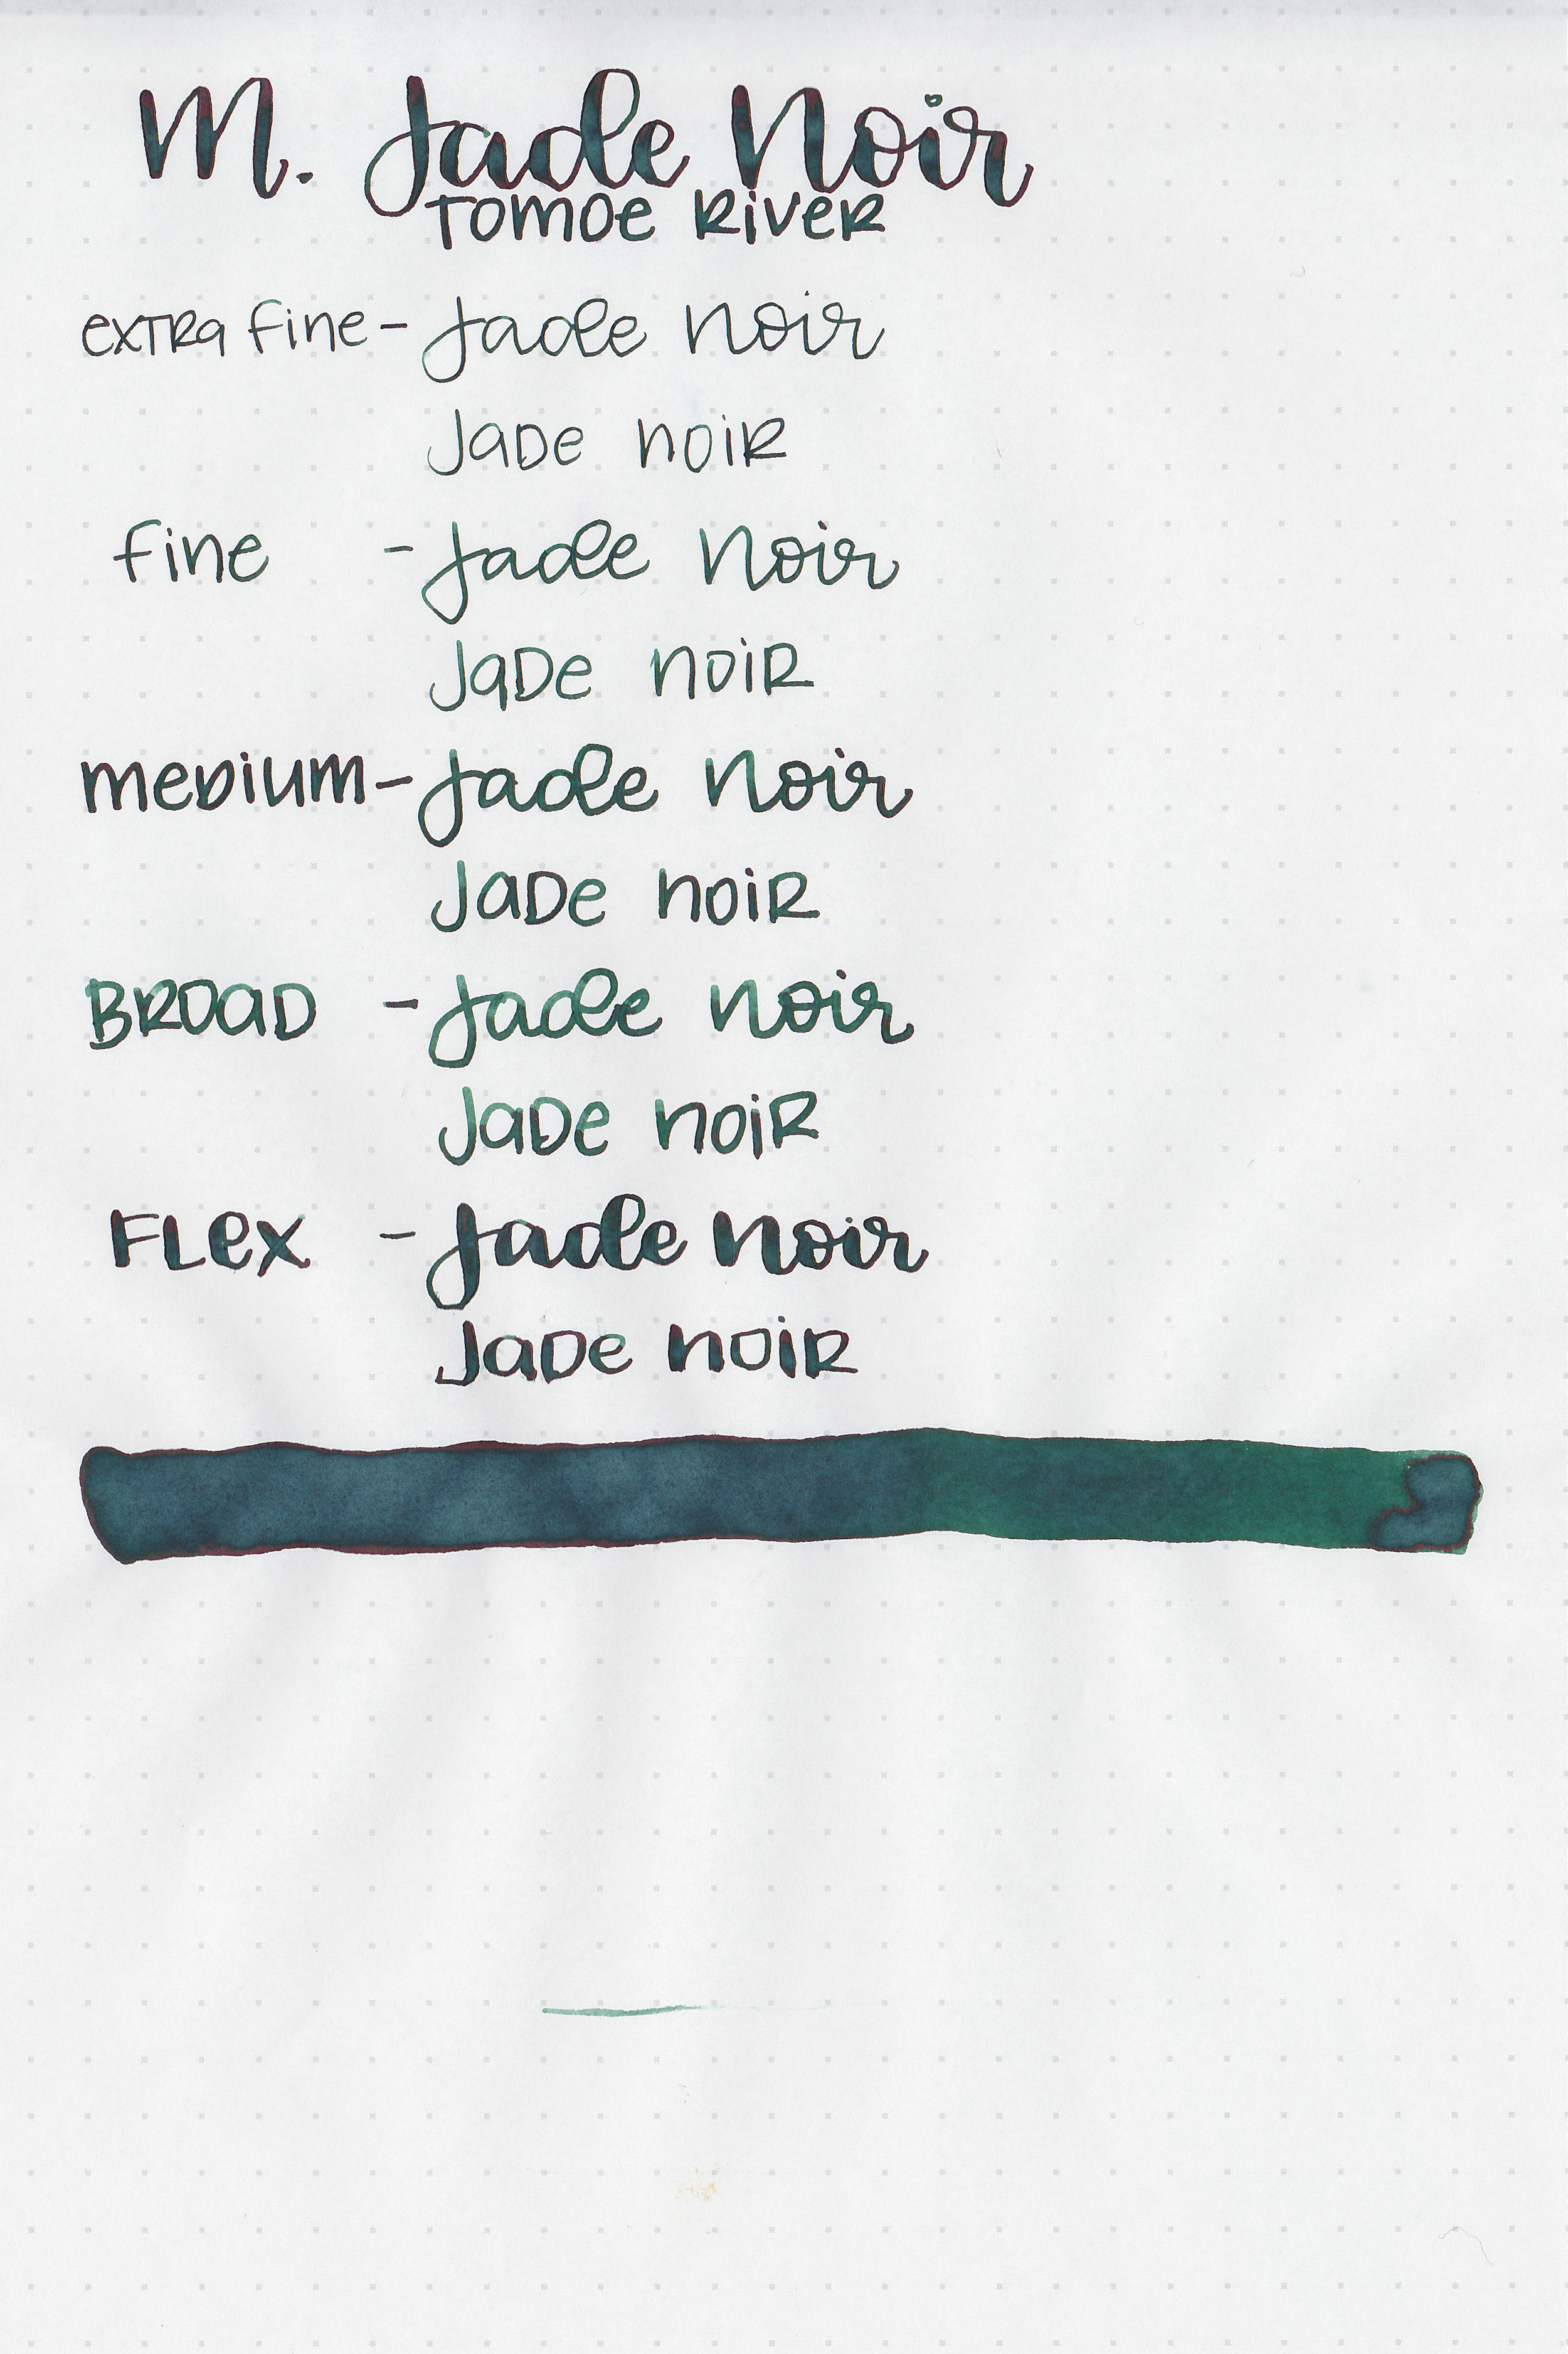 M. Jade Noir
Tomoe River
extra fine - Jade Noir
Jade Noir
fine - Jade Noir
Jade Noir
medium - Jade Noir
Jade Noir
Broad - Jade Noir
Jade Noir
Flex - Jade Noir
Jade Noir